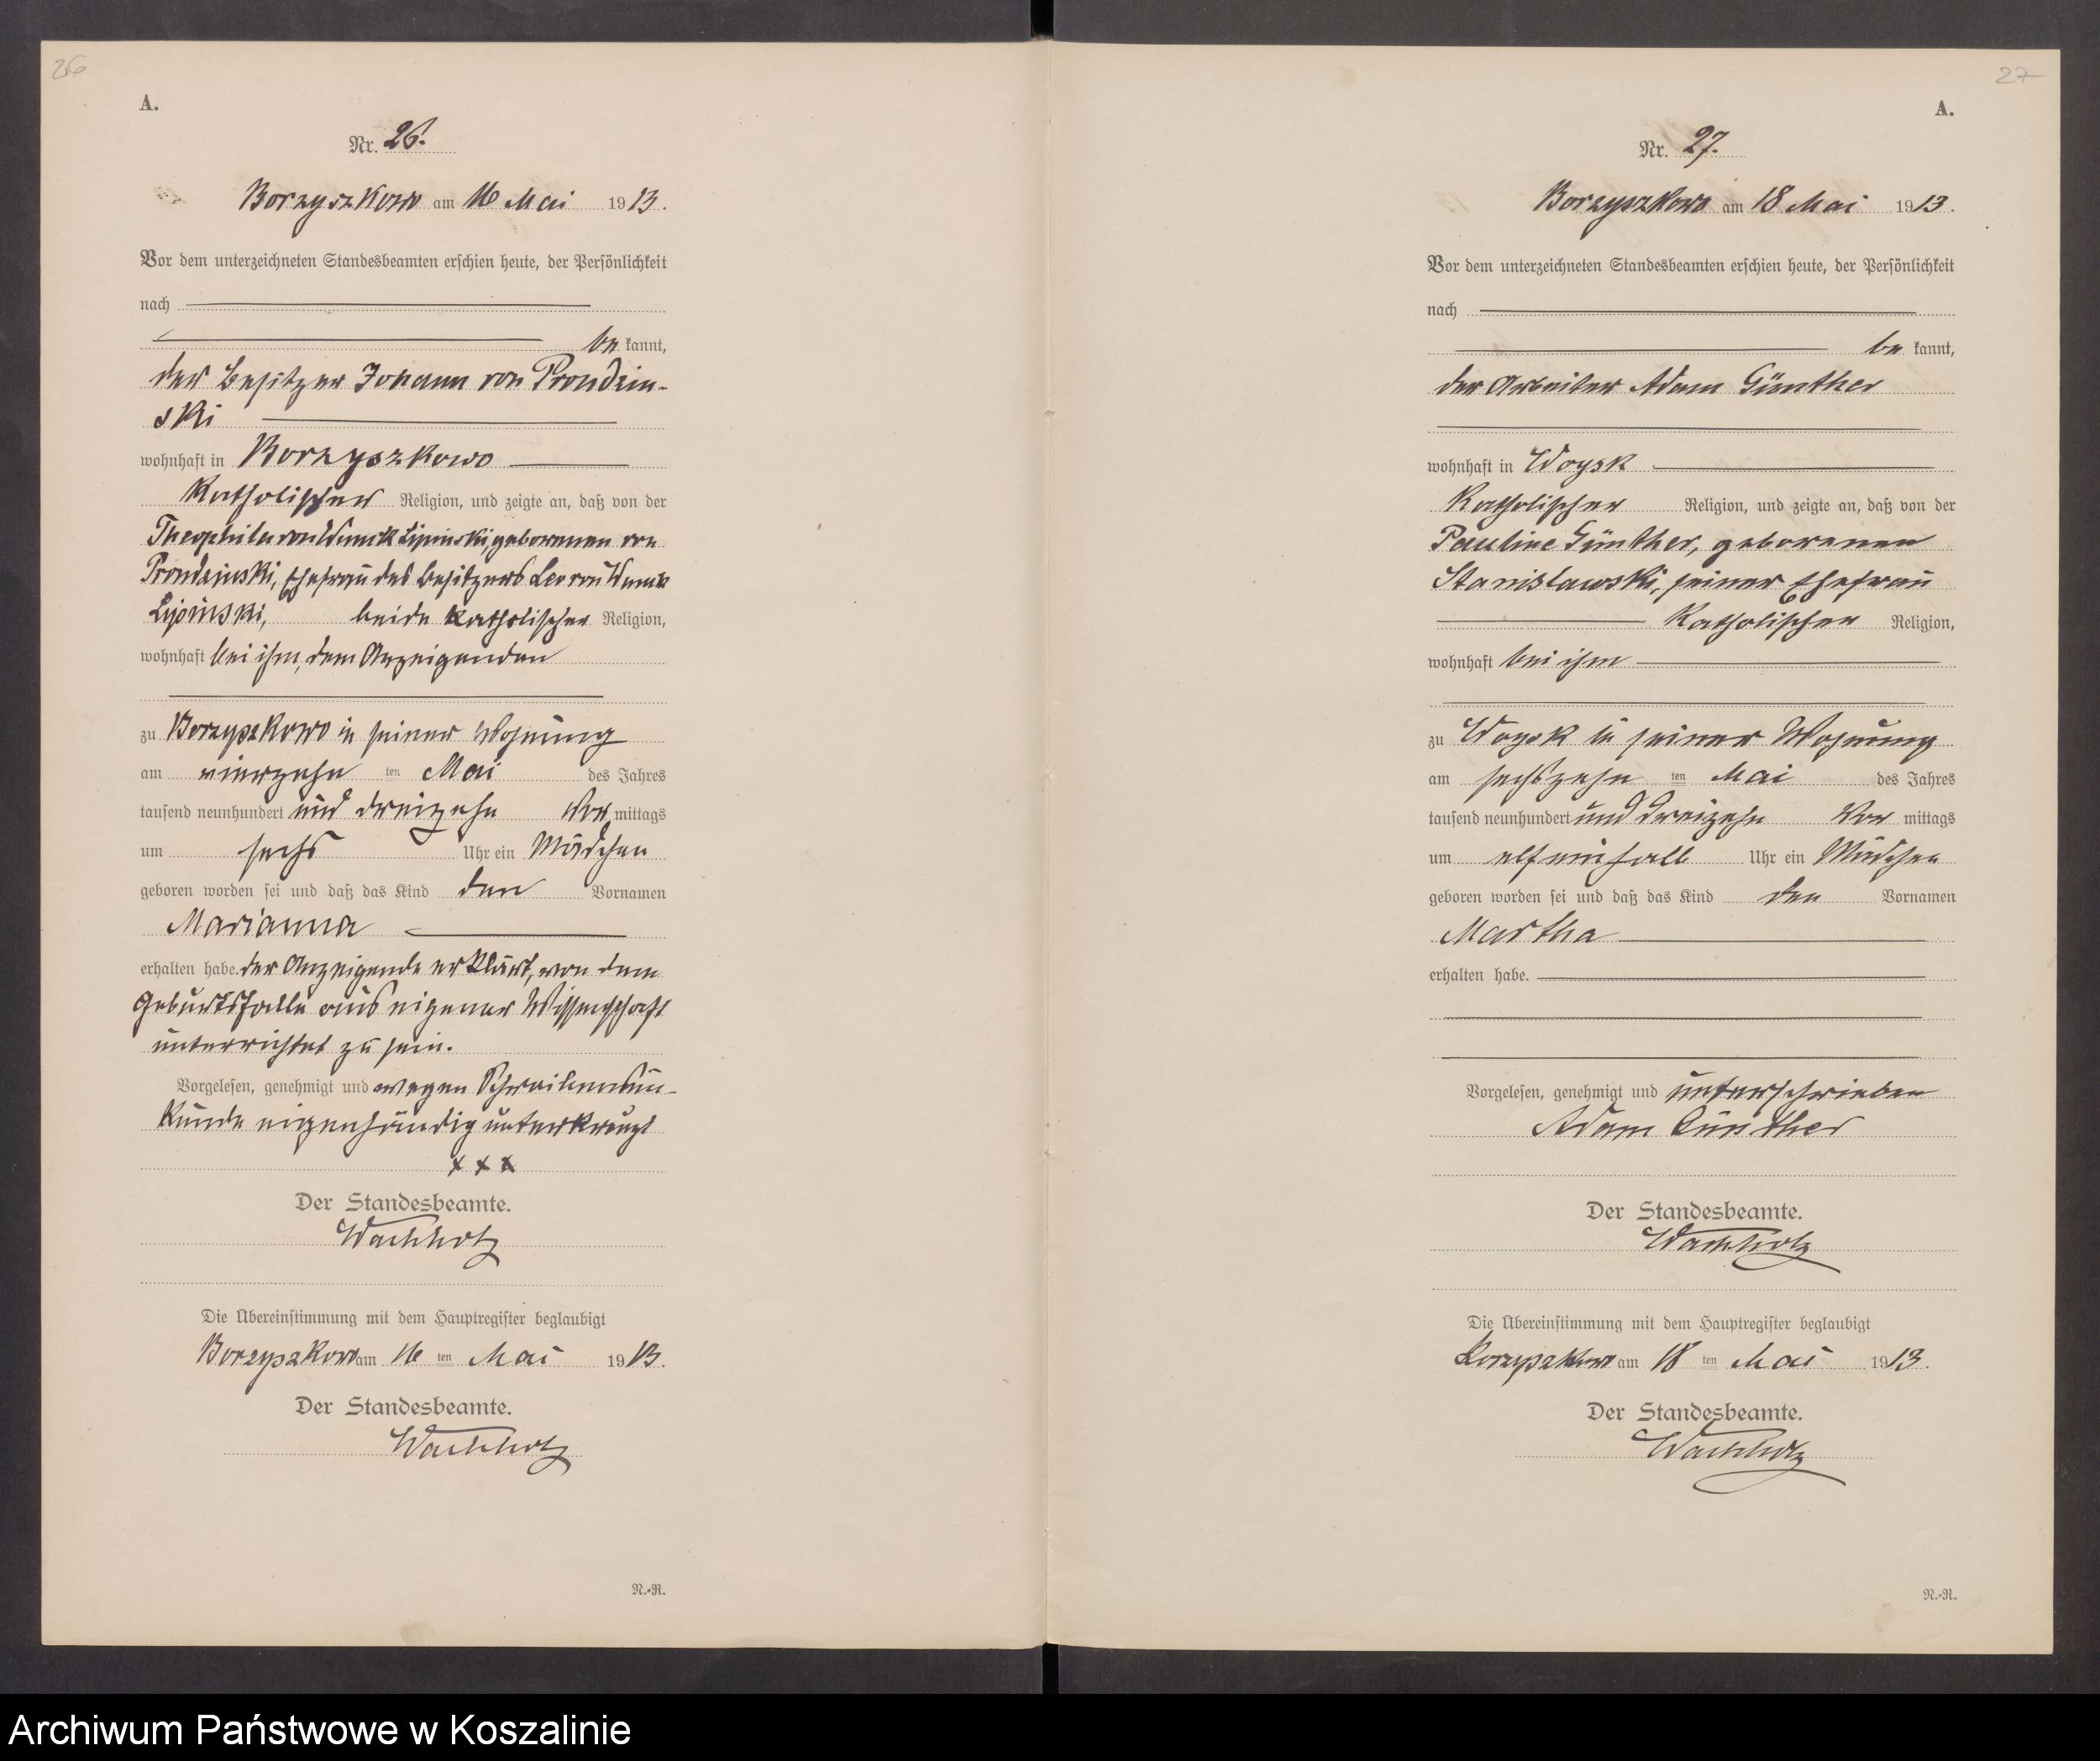 26
A.
Nr. 26.
Borzyszkowo am 16 Mai 1913.
Vor dem unterzeichneten Standesbeamten erschien heute, der Persönlichkeit
nach
be kannt,
der Besitzer Johann von Prondzin-
ski
wohnhaft in Borzyszkowo
katholischer Religion, und zeigte an, daß von der
Theophila von Wnuck Lipinski, geborenen von
Prondzinski, Ehefrau des Besitzers Leo von Wnuck
Lipinski, beide katholischer Religion,
wohnhaft bei ihm, dem Anzeigenden
zu Borzyszkowo in seiner Wohnung
am vierzehn ten Mai des Jahres
tausend neunhundert und dreizehn Vor mittags
um sechs Uhr ein Mädchen
geboren worden sei und daß das Kind den Vornamen
Marianna
erhalten habe. Der Anzeigende erklärt, von dem
Geburtsfalle aus eigener Wissenschaft
unterrichtet zu sein.
Vorgelesen, genehmigt und wegen Schreibensun-
kunde eigenhändig unterkreuzt
x x x
Der Standesbeamte.
Wachholz
Die Übereinstimmung mit dem Hauptregister beglaubigt
Borzyszkowo am 16 ten Mai 1913.
Der Standesbeamte.
Wachholz
N.-R.
27
A.
Nr. 27.
Borzyszkowo am 18 Mai 1913.
Vor dem unterzeichneten Standesbeamten erschien heute, der Persönlichkeit
nach
be kannt,
der Arbeiter Adam Günther
wohnhaft in Woysk
katholischer Religion, und zeigte an, daß von der
Pauline Günther, geborenen
Stanislawski, seiner Ehefrau
katholischen Religion,
wohnhaft bei ihm
zu Woysk in seiner Wohnung
am sechszehn ten Mai des Jahres
tausend neunhundert und dreizehn Vor mittags
um elfeinhalb Uhr ein Mädchen
geboren worden sei und daß das Kind den Vornamen
Martha
erhalten habe.
Vorgelesen, genehmigt und unterschrieben
Adam Günther
Der Standesbeamte.
Wachholz
Die Übereinstimmung mit dem Hauptregister beglaubigt
Borzyszkowo am 18 ten Mai 1913.
Der Standesbeamte.
Wachholz
N.-R.
Archiwum Państwowe w Koszalinie